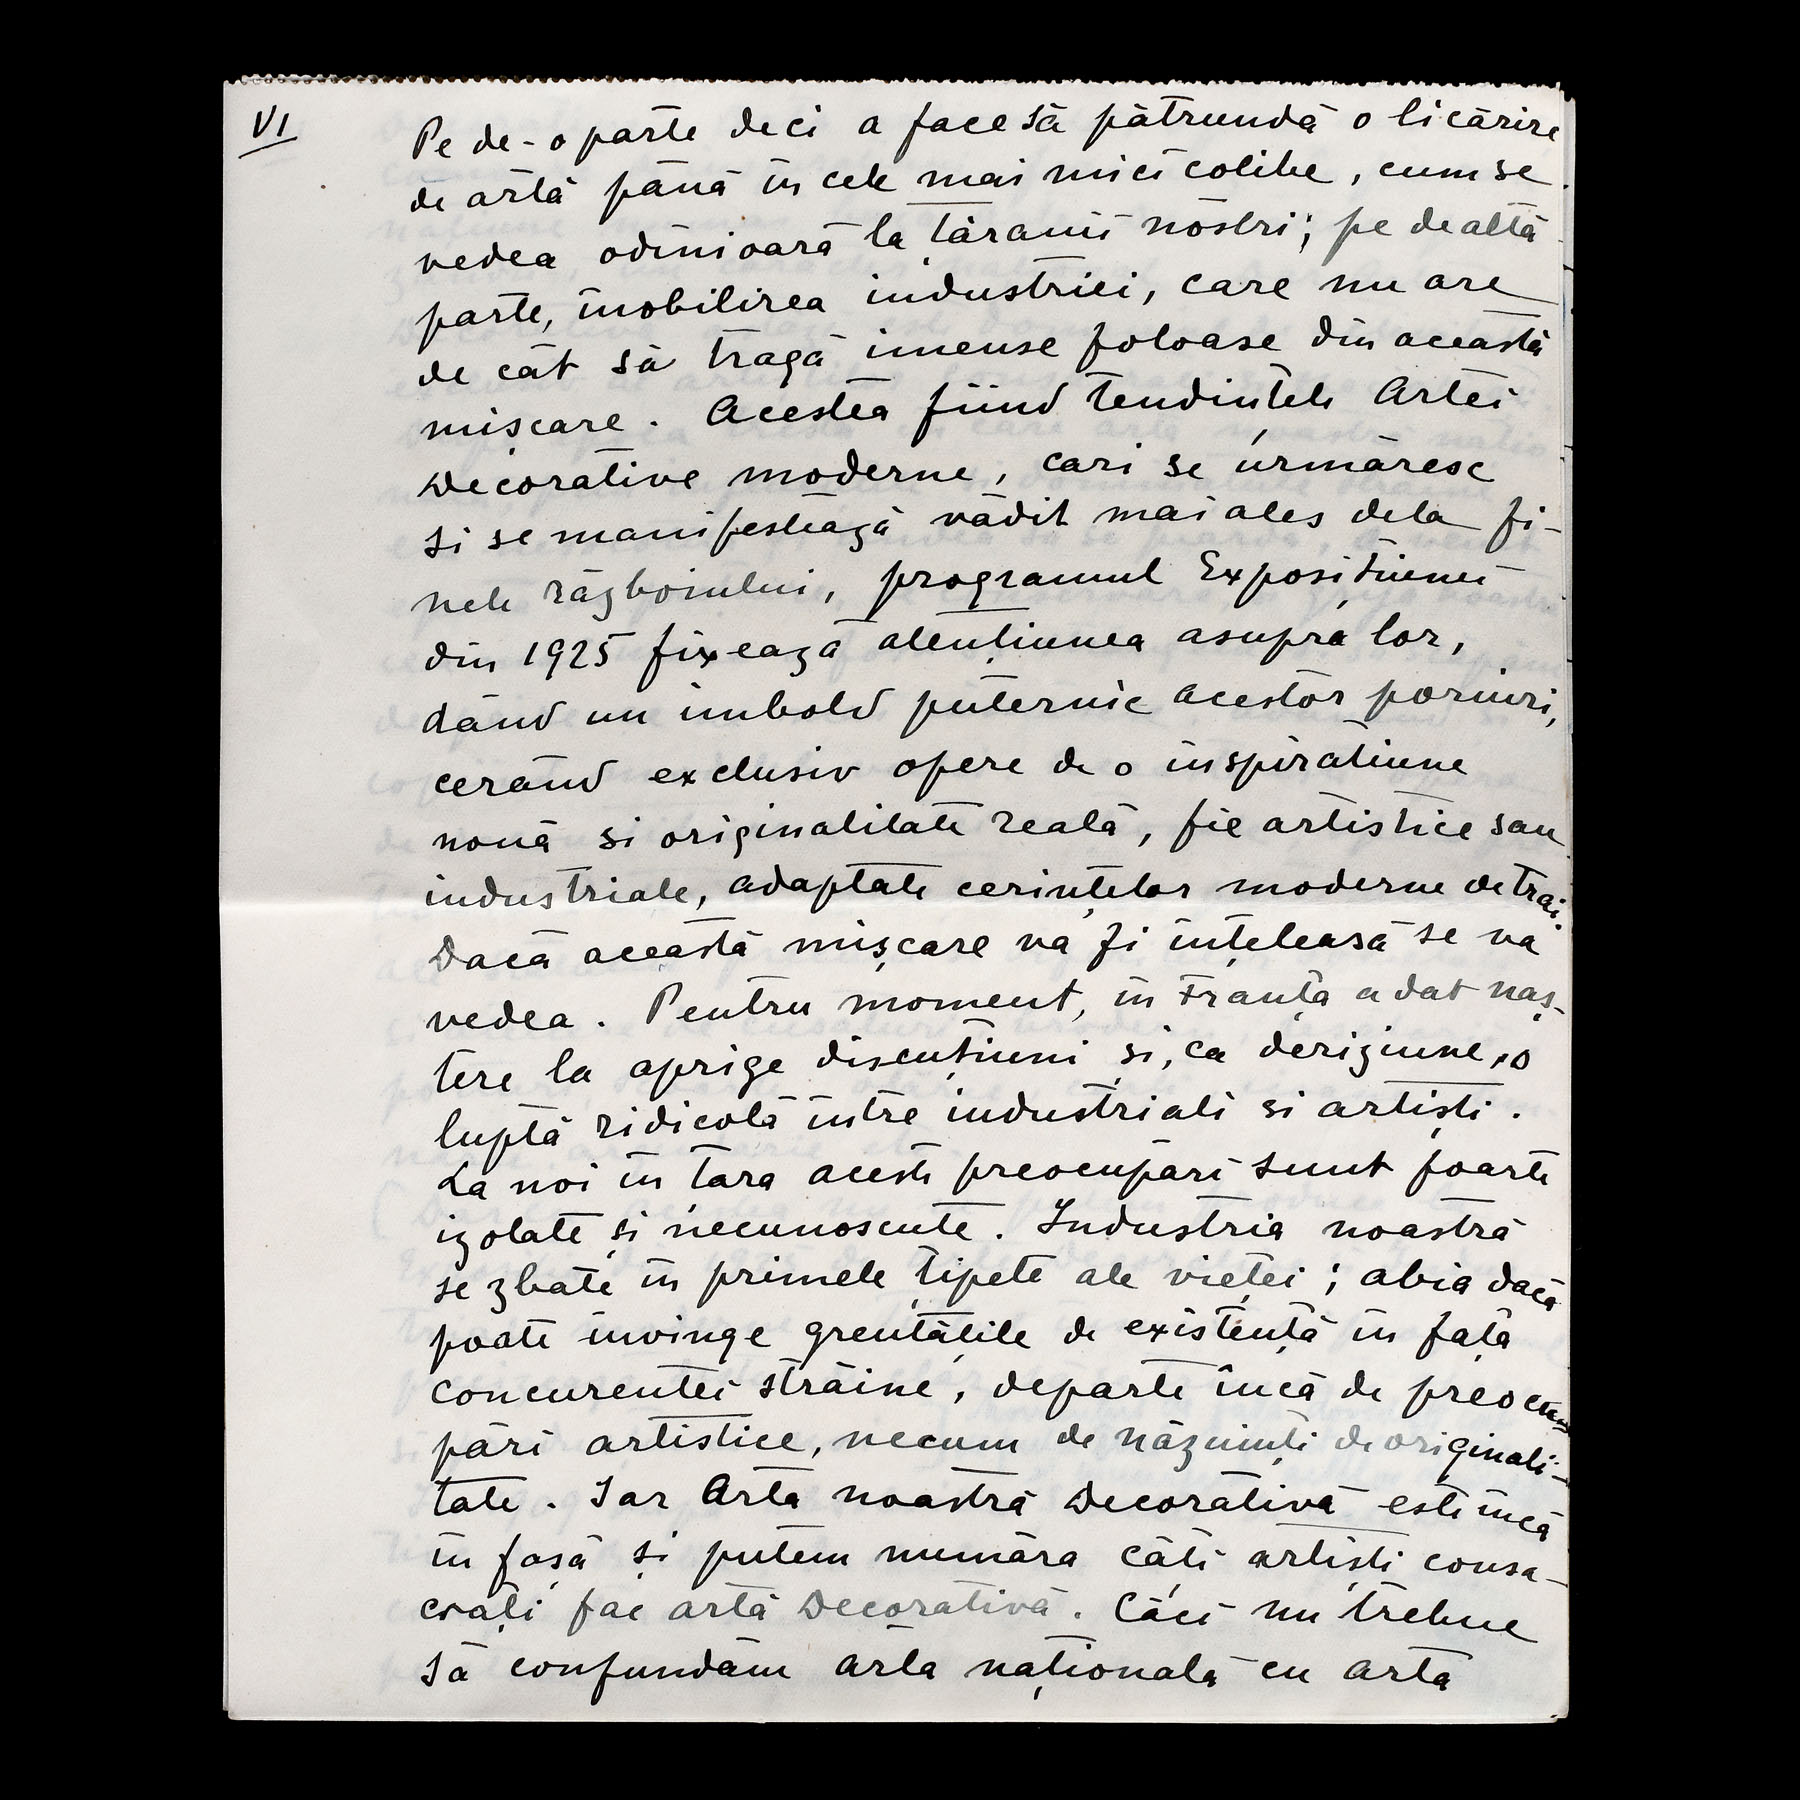 VI
Pe de-o parte deci a face să pătrundă o licărire
de artă până în cele mai mici colibe, cum se
vedea odinioară la țăranii noștri; pe de altă
parte, înobilirea industriei, care nu are
de cât să tragă imense foloase din această
mișcare. Acestea fiind tendințele Artei
Decorative moderne, cari se urmăresc
și se manifestează vădit mai ales dela fi-
nele războiului, programul Expozițiunei
din 1925 fixează atențiunea asupra lor,
dând un imbold puternic acestor porniri,
cerând exclusiv opere de o inspirațiune
nouă si originalitate reală, fie artistice sau
industriale, adaptate cerințelor moderne de trai.
Dacă această mișcare va fi înțeleasă se va
vedea. Pentru moment, în Franța a dat naș-
tere la aprige discuțiuni și, ca deriziune, o
luptă ridicolă între industriali si artiști.
La noi în țara aceste preocupări sunt foarte
izolate și necunoscute. Industria noastră
se zbate în primele țipete ale vieței; abia dacă
poate învinge greutățile de existență în fața
concurentei străine, departe încă de preocu-
pări artistice, necum de năzuinți de originali-
tate. Iar Arta noastră Decorativă este încă
în fașă și putem număra câți artiști consa-
crați fac artă Decorativă. Căci nu trebue
să confundăm arta națională cu arta